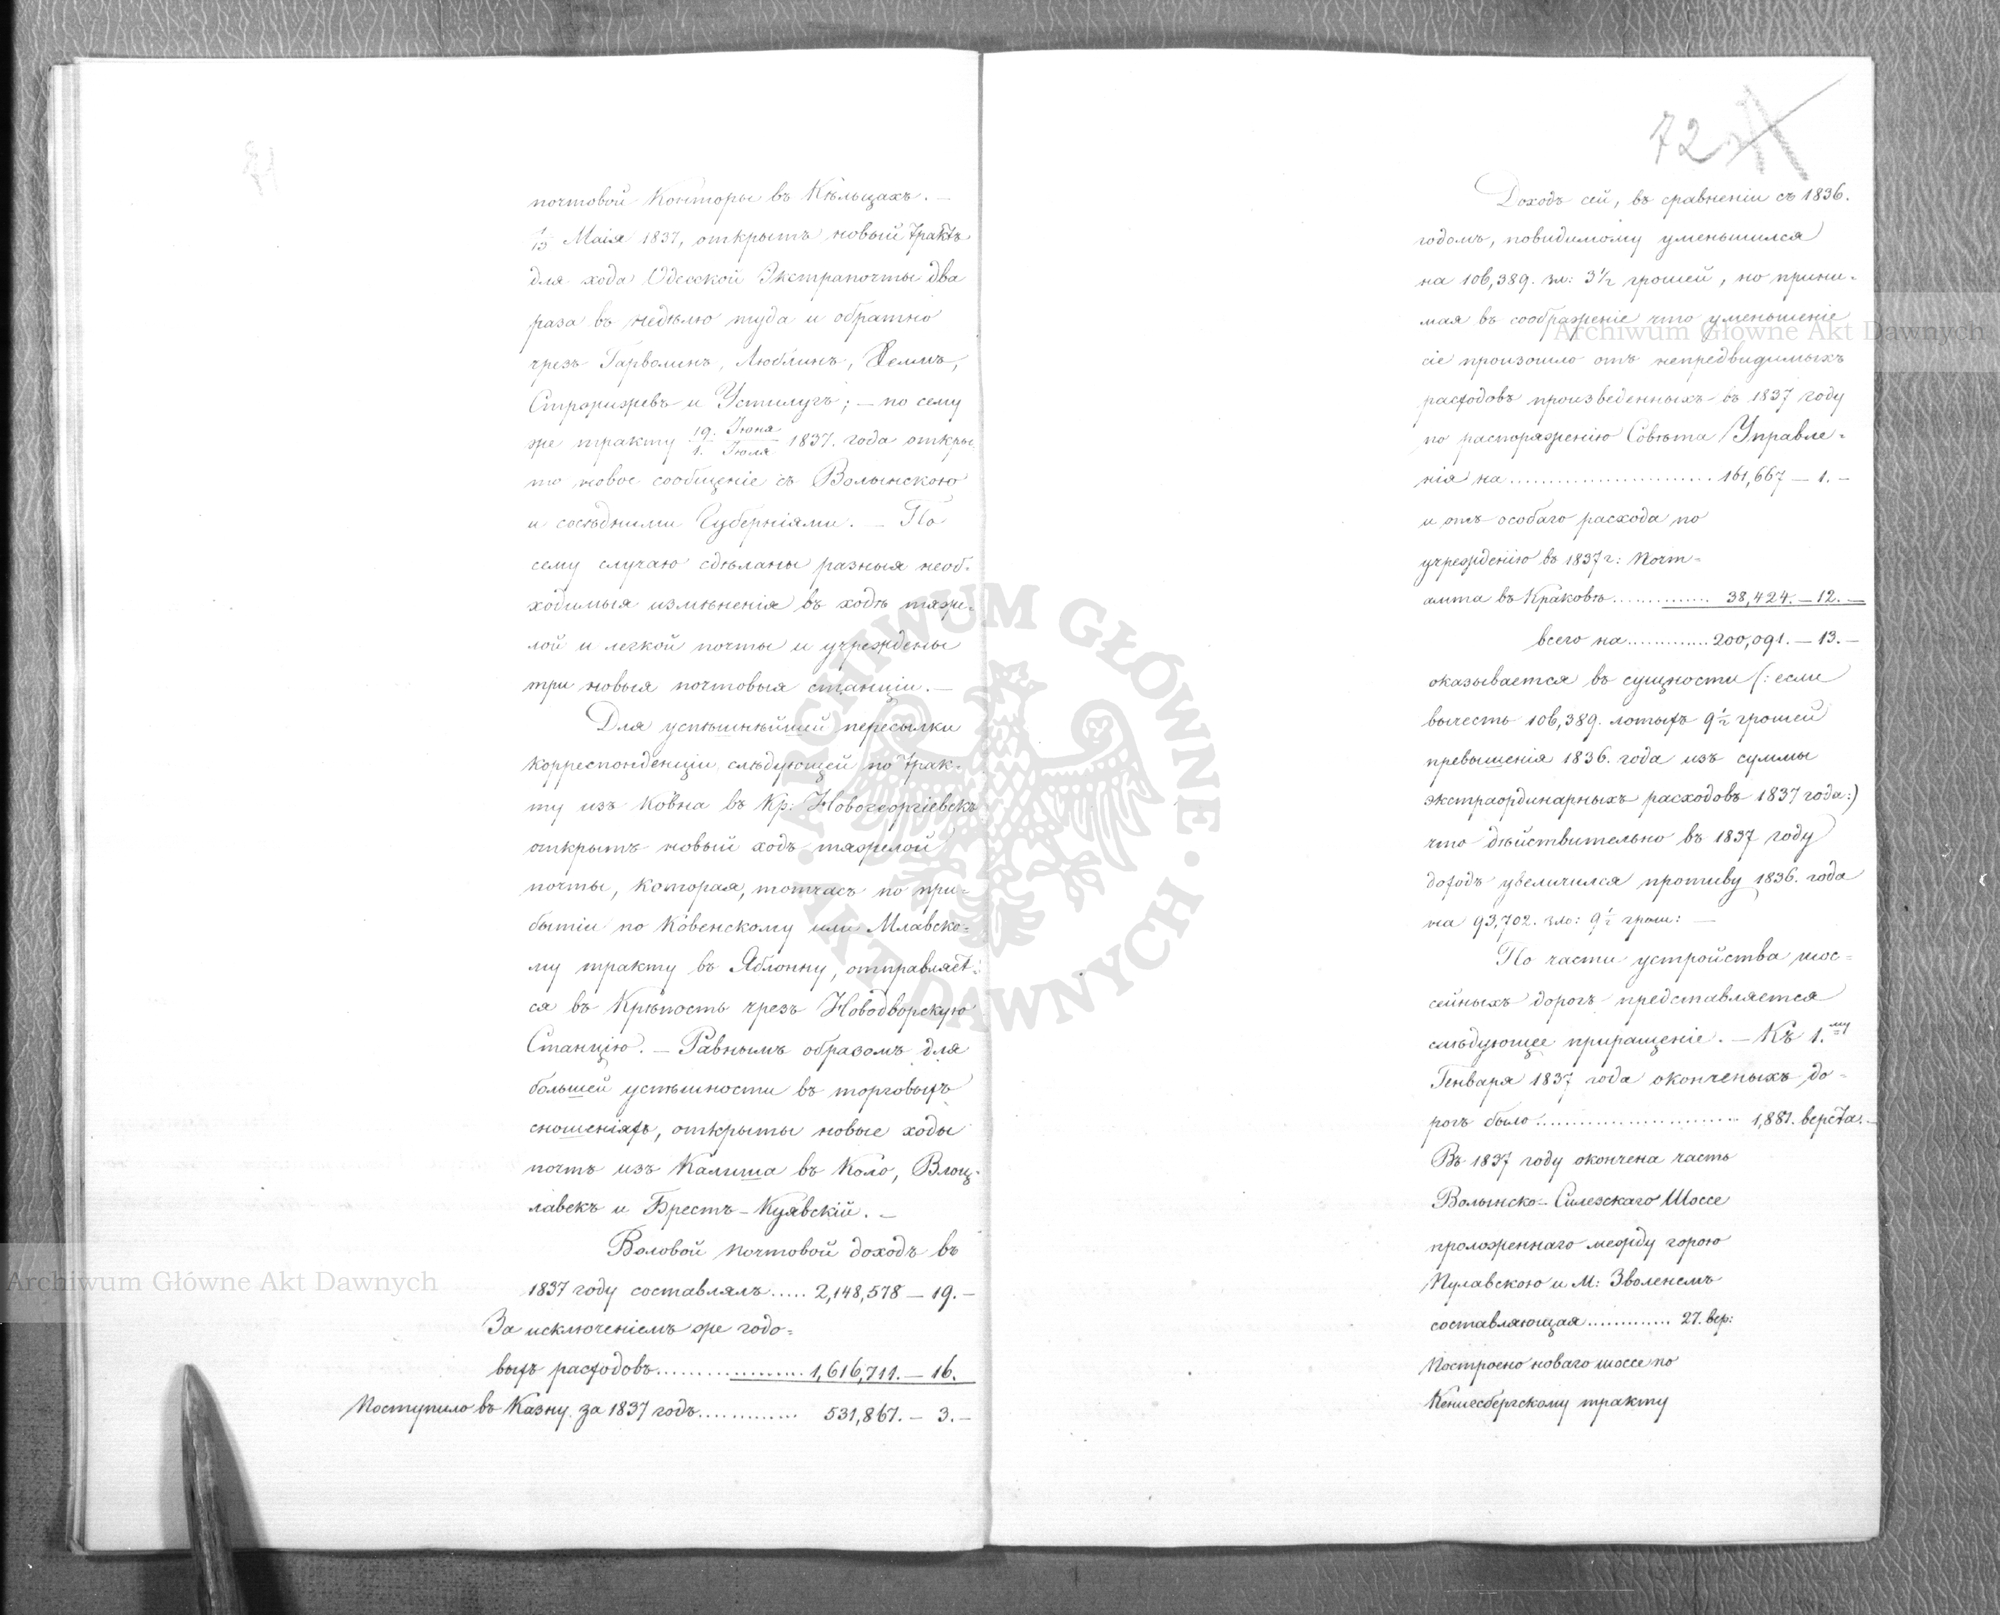 почтовой Конторы въ Кѣльцахъ. —
1/13 Маія 1837, открытъ новый трактъ
для хода Одесской Экстрапочты два
раза въ недѣлю туда и обратно
чрезъ Гарволинъ, Люблинъ, Хелмъ,
Стрижижевъ и Устилугъ; — по сему
же тракту 19. Іюня / 1. Іюля 1837. года откры-
то новое сообщеніе съ Волынскою
и сосѣдними Губерніями. — По
сему случаю сдѣланы разныя необ-
ходимыя измѣненія въ ходѣ тяже-
лой и легкой почты и учреждены
три новыя почтовыя станціи. —
Для успѣшнѣйшей пересылки
корреспонденціи слѣдующей по трак-
ту изъ Ковна въ Кр: Новогеоргіевскъ
открытъ новый ходъ тяжелой
почты, которая, тотчасъ по при-
бытіи по Ковенскому или Млавско-
му тракту въ Яблонну, отправляет-
ся въ Крѣпость чрезъ Новодворскую
Станцію. — Равнымъ образомъ для
большей успѣшности въ торговыхъ
сношеніяхъ, открыты новые ходы
почтъ изъ Калиша въ Коло, Влоц-
лавекъ и Брестъ-Куявскій. —
Валовой почтовой доходъ въ
1837 году составлялъ ..... 2,148,578 — 19. —
За исключеніемъ же годо-
выхъ расходовъ .................. 1,616,711. — 16.
Поступило въ Казну за 1837 годъ ............. 531,867. — 3. —
72
Доходъ сей, въ сравненіи съ 1836.
годомъ, повидимому уменьшился
на 106,389. зл: 3½ грошей, но прини-
мая въ соображеніе что уменьшеніе
сіе произошло отъ непредвидимыхъ
расходовъ произведенныхъ въ 1837 году
по распоряженію Совѣта Управле-
нія на ........................ 161,667 — 1. —
и отъ особаго расхода по
учрежденію въ 1837 г: Почт-
амта въ Краковѣ .............. 38,424. — 12. —
всего на ............ 200,091. — 13. —
оказывается въ сущности (: если
вычесть 106,389. злотыхъ 9½ грошей
превышенія 1836. года изъ суммы
экстраординарныхъ расходовъ 1837 года:)
что дѣйствительно въ 1837 году
доходъ увеличился противу 1836. года
на 93,702. зло: 9½ грош: —
По части устройства шос-
сейныхъ дорогъ представляется
слѣдующее приращеніе. — Къ 1.му
Генваря 1837 года оконченыхъ до-
рогъ было ......................... 1,881. верста. —
Въ 1837 году окончена часть
Волынско-Силезскаго Шоссе
проложеннаго между горою
Пулавскою и М: Зволенемъ
составляющая ............. 27. вер:
Построено новаго шоссе по
Кенигсбергскому тракту
ARCHIWUM GŁÓWNE AKT DAWNYCH
Archiwum Główne Akt Dawnych
Archiwum Główne Akt Dawnych